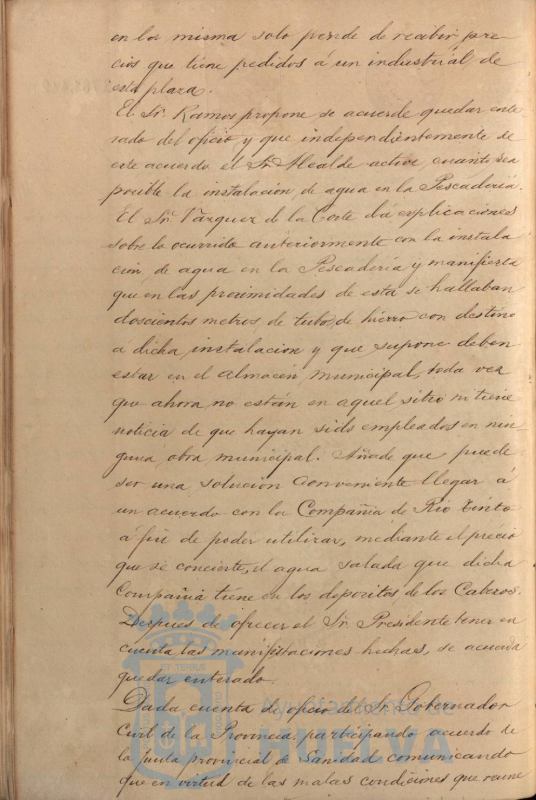 en la misma solo pende de recibir pre-
cios que tiene pedidos á un industrial de
esta plaza.
El Sr. Ramos propone se acuerde quedar ente
rado del oficio y que independientemente de
este acuerdo el Sr. Alcalde active cuanto sea
posible la instalación de agua en la Pescadería.
El Sr. Vázquez de la Corte dá explicaciones
sobre lo ocurrido anteriormente con la instala
ción de agua en la Pescadería y manifiesta
que en las proximidades de esta se hallaban
doscientos metros de tubo de hierro con destino
á dicha instalacion y que supone deben
estar en el almacén municipal, toda vez
que ahora no están en aquel sitio ni tiene
noticia de que hayan sido empleados en nin
guna obra municipal. Añade que puede
ser una solución conveniente llegar á
un acuerdo con la Compañía de Rio Tinto
á fin de poder utilizar, mediante el precio
que se concierte, el agua salada que dicha
Compañia tiene en los depositos de los Cabezos.
Despues de ofrecer el Sr. Presidente tener en
cuenta las manifestaciones hechas, se acuerda
quedar enterado.
Dada cuenta de oficio del Sr. Gobernador
Civil de la Provincia participando acuerdo de
la Junta provincial de Sanidad comunicando
que en virtud de las malas condiciones que reune
Ayuntamiento de
HUELVA